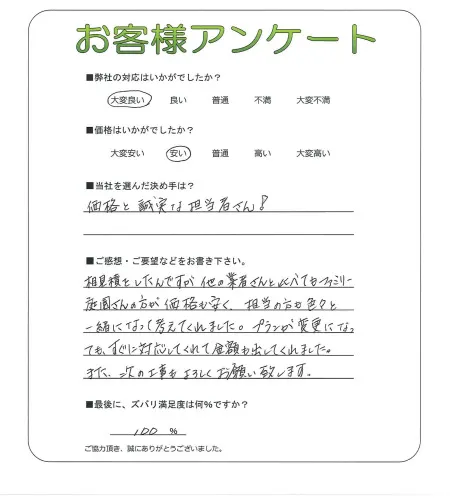 お客様アンケート
■弊社の対応はいかがでしたか？
大変良い 良い 普通 不満 大変不満
■価格はいかがでしたか？
大変安い 安い 普通 高い 大変高い
■当社を選んだ決め手は？
価格と誠実な担当者さん！
■ご感想・ご要望などをお書き下さい。
相見積としたんですが他の業者さんと比べてもファミリー
庭園さんの方が価格も安く、担当の方も色々と
一緒になって考えてくれました。プランが変更になっ
ても、すぐに対応してくれて金額も出してくれました。
また、次の工事もよろしくお願い致します。
■最後に、ズバリ満足度は何％ですか？
100 %
ご協力頂き、誠にありがとうございました。